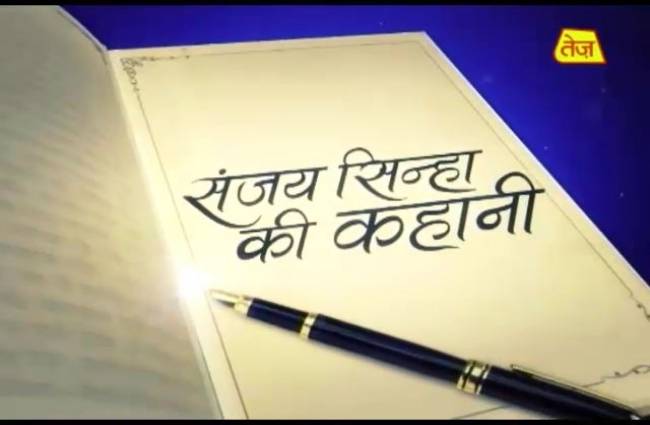 तेज़
संजय सिन्हा
की कहानी